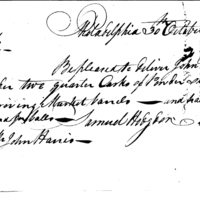 Philadelphia 30th October
Be pleased to deliver John
two quarter Casks of Powder
Musket barrels — and
balls — Samuel Hodgdon
John Harris